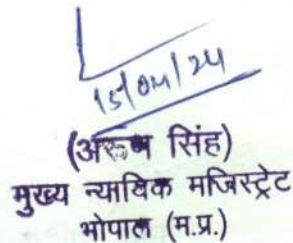 15/04/24
(अरूण सिंह)
मुख्य न्यायिक मजिस्ट्रेट
भोपाल (म.प्र.)